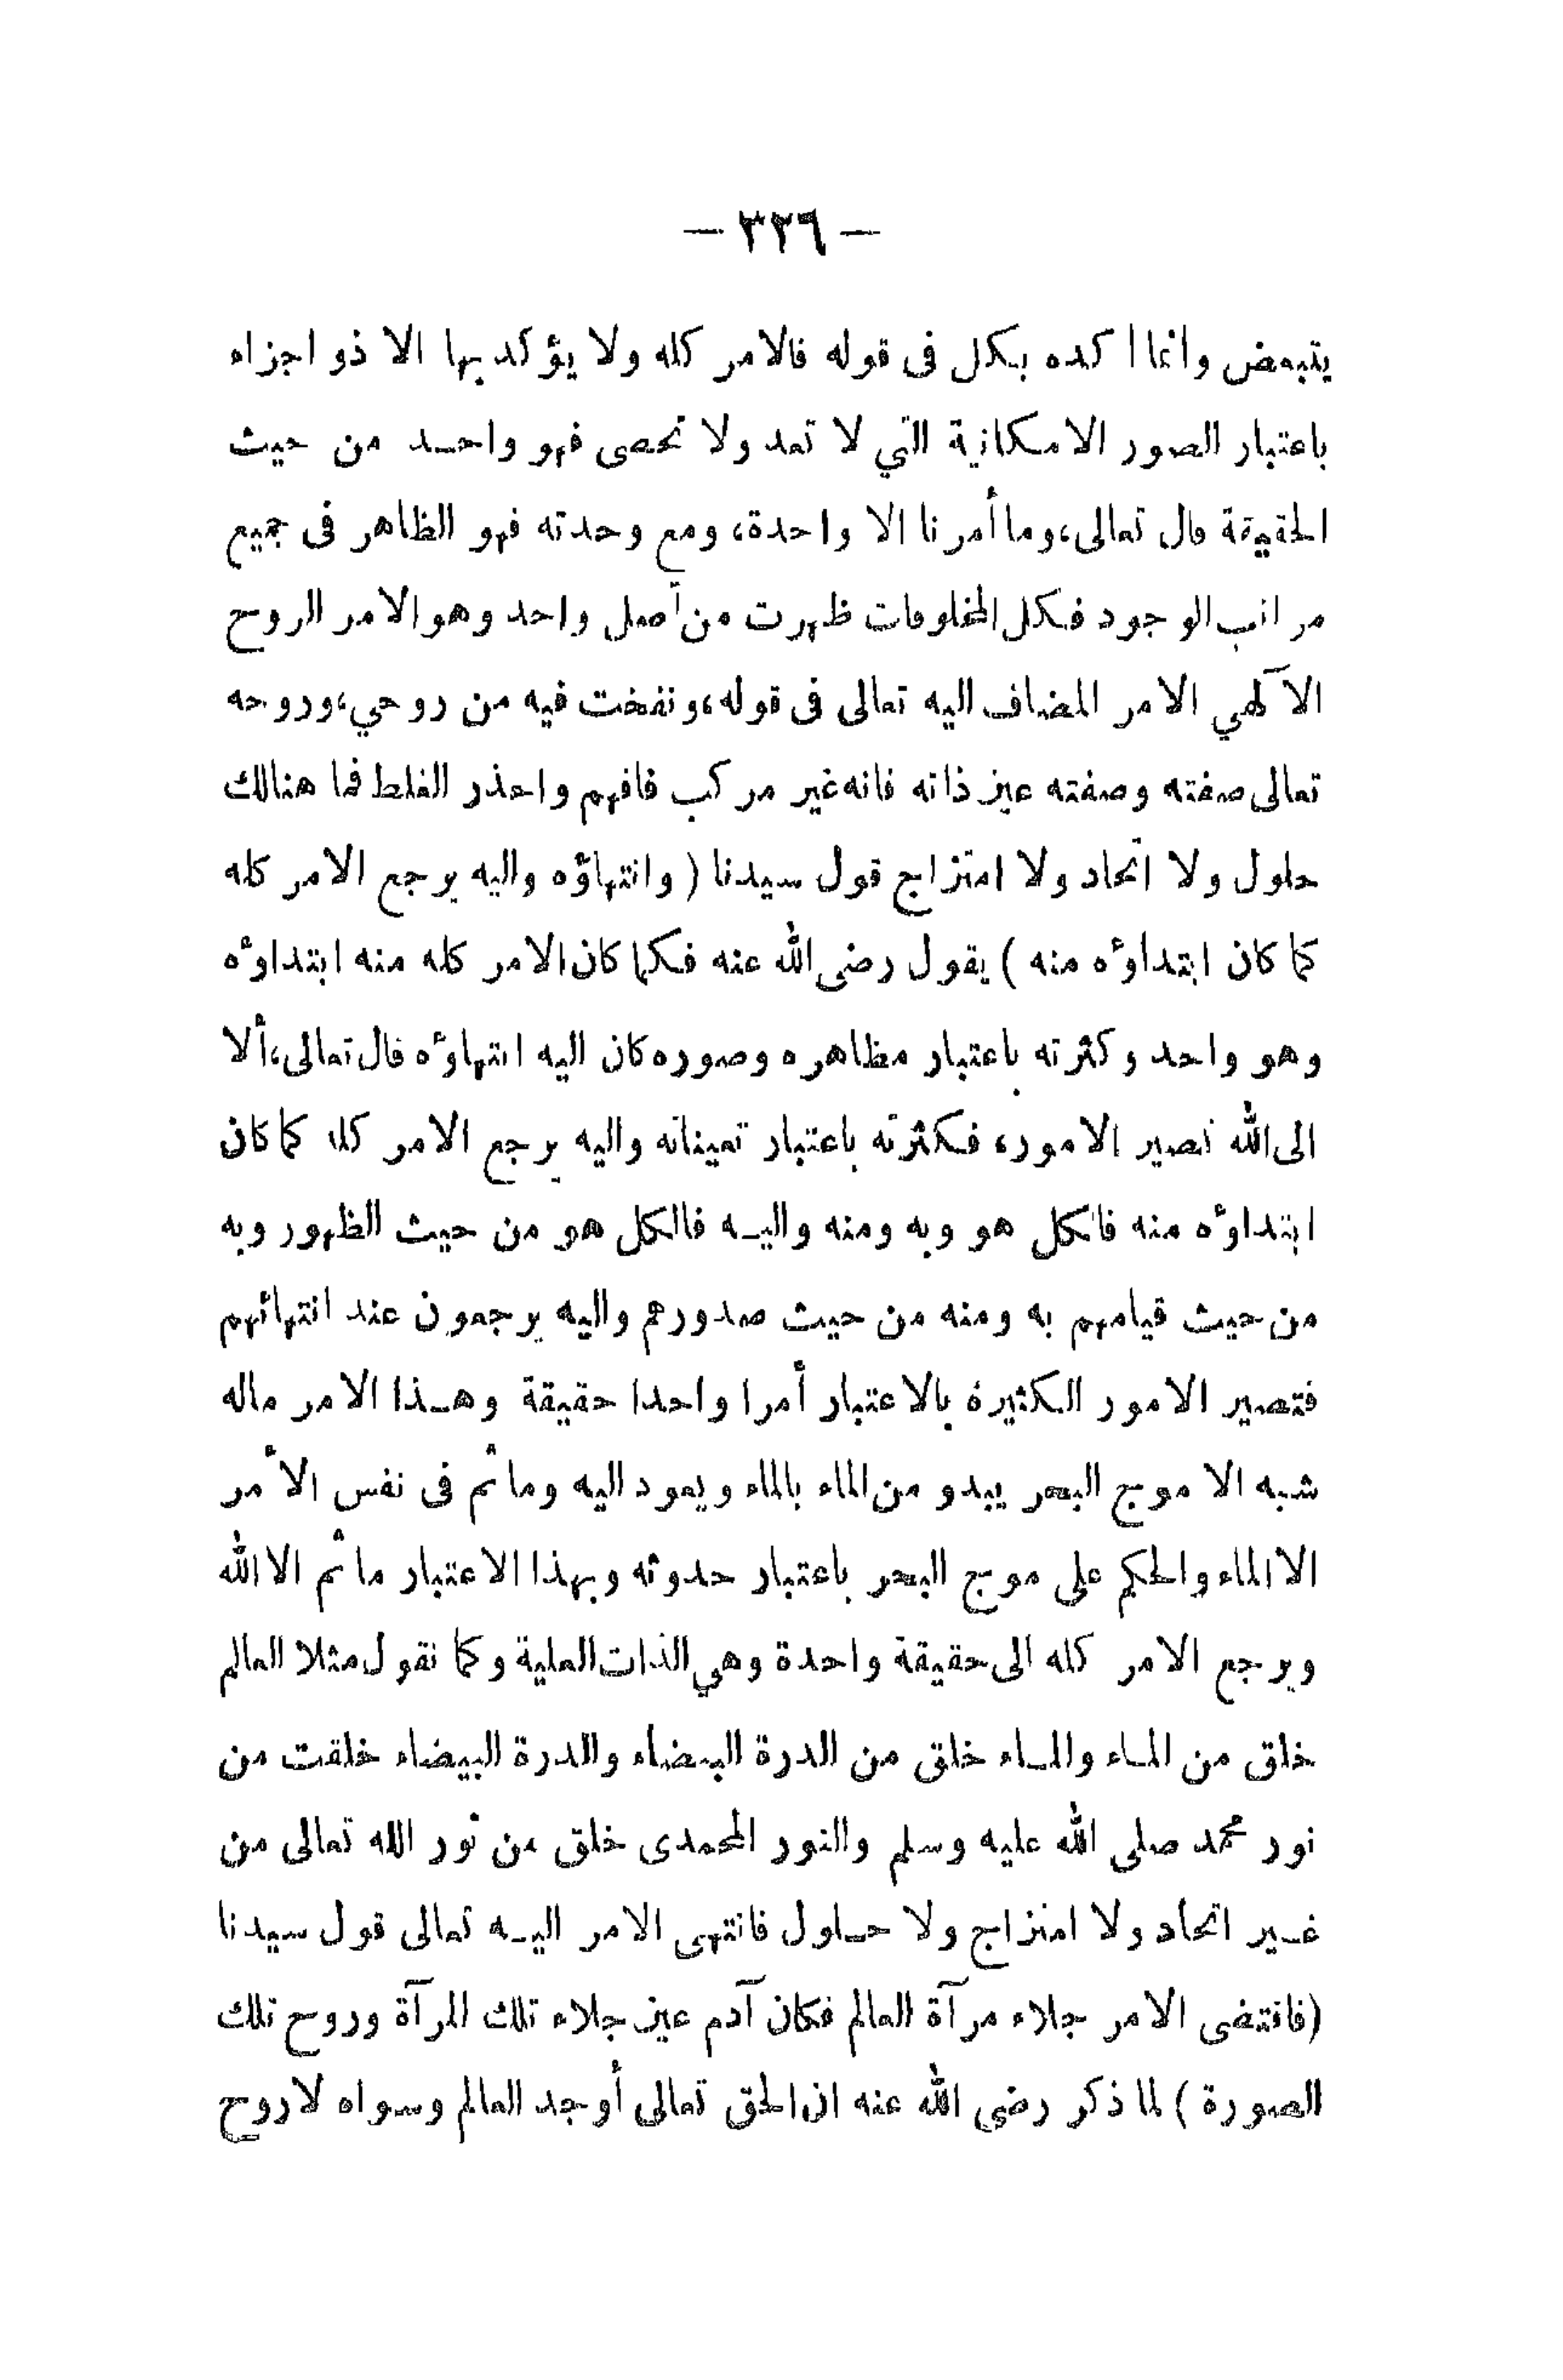 — ٣٢٦ —
يتبعض وانما اكده بكل فى قوله فالامر كله ولا يؤكد بها الا ذو اجزاء
باعتبار الصور الامكانية التي لا تعد ولا تحصى فهو واحد من حيث
الحقيقة قال تعالى،وما أمرنا الا واحدة، ومع وحدته فهو الظاهر فى جميع
مراتب الوجود فكل المخلوقات ظهرت من أصل واحد وهو الامر الروح
الآلهي الامر المضاف اليه تعالى فى قوله،ونفخت فيه من روحي،وروحه
تعالى صفته وصفته عين ذاته فانه غير مركب فافهم واحذر الغلط فما هنالك
حلول ولا اتحاد ولا امتزاج قول سيدنا ( وانتهاؤه واليه يرجع الامر كله
كما كان ابتداوٴه منه ) يقول رضى الله عنه فكما كان الامر كله منه ابتداوٴه
وهو واحد وكثرته باعتبار مظاهره وصوره كان اليه انتهاوٴه قال تعالى،ألا
الى الله تصير الامور، فكثرته باعتبار تعيناته واليه يرجع الامر كله كما كان
ابتداوٴه منه فالكل هو وبه ومنه واليه فالكل هو من حيث الظهور وبه
من حيث قيامهم به ومنه من حيث صدورهم واليه يرجعون عند انتهائهم
فتصير الامور الكثيرة بالاعتبار أمرا واحدا حقيقة وهذا الامر ماله
شبه الا موج البحر يبدو من الماء بالماء ويعود اليه وما ثم فى نفس الأمر
الا الماء والحكم على موج البحر باعتبار حدوثه وبهذا الاعتبار ما ثم الا الله
ويرجع الامر كله الى حقيقة واحدة وهي الذات العلية وكما نقول مثلا العالم
خلق من الماء والماء خلق من الدرة البيضاء والدرة البيضاء خلقت من
نور محمد صلى الله عليه وسلم والنور المحمدى خلق من نور الله تعالى من
غير اتحاد ولا امتزاج ولا حلول فانتهى الامر اليه تعالى قول سيدنا
(فاقتضى الامر جلاء مرآة العالم فكان آدم عين جلاء تلك المرآة وروح تلك
الصورة ) لما ذكر رضى الله عنه ان الحق تعالى أوجد العالم وسواه لاروح